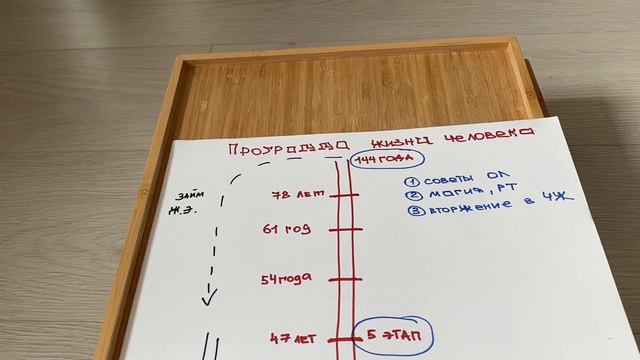 Программа жизни человека
144 ГОДА
① советы ОЛ
78 лет
② магия, РТ
ЗАЙМ
Ж.Э.
③ вторжение в ЧЖ
61 год
54 года
47 ЛЕТ
5 ЭТАП